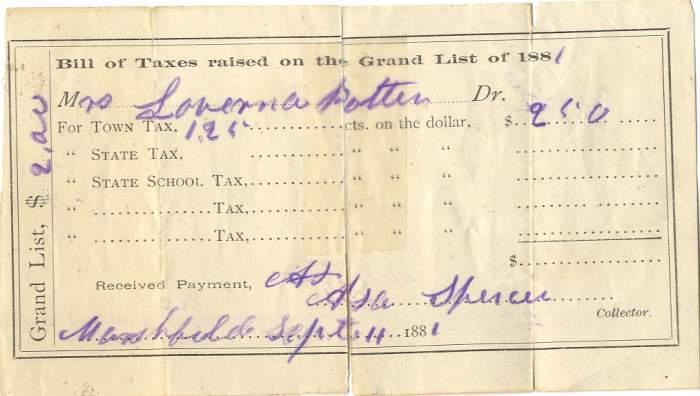 Bill of Taxes raised on the Grand List of 1881
Mrs Loverna Potter Dr.
For Town Tax, 1,25 cts. on the dollar, $ 2 50
“ State Tax, “ “ “
“ State School Tax, “ “ “
“ Tax, “ “ “
“ Tax, “ “ “
$
Received Payment,
Asa Spencer
Collector.
Marshfield Sept 11 1881
Grand List, $ 2,00